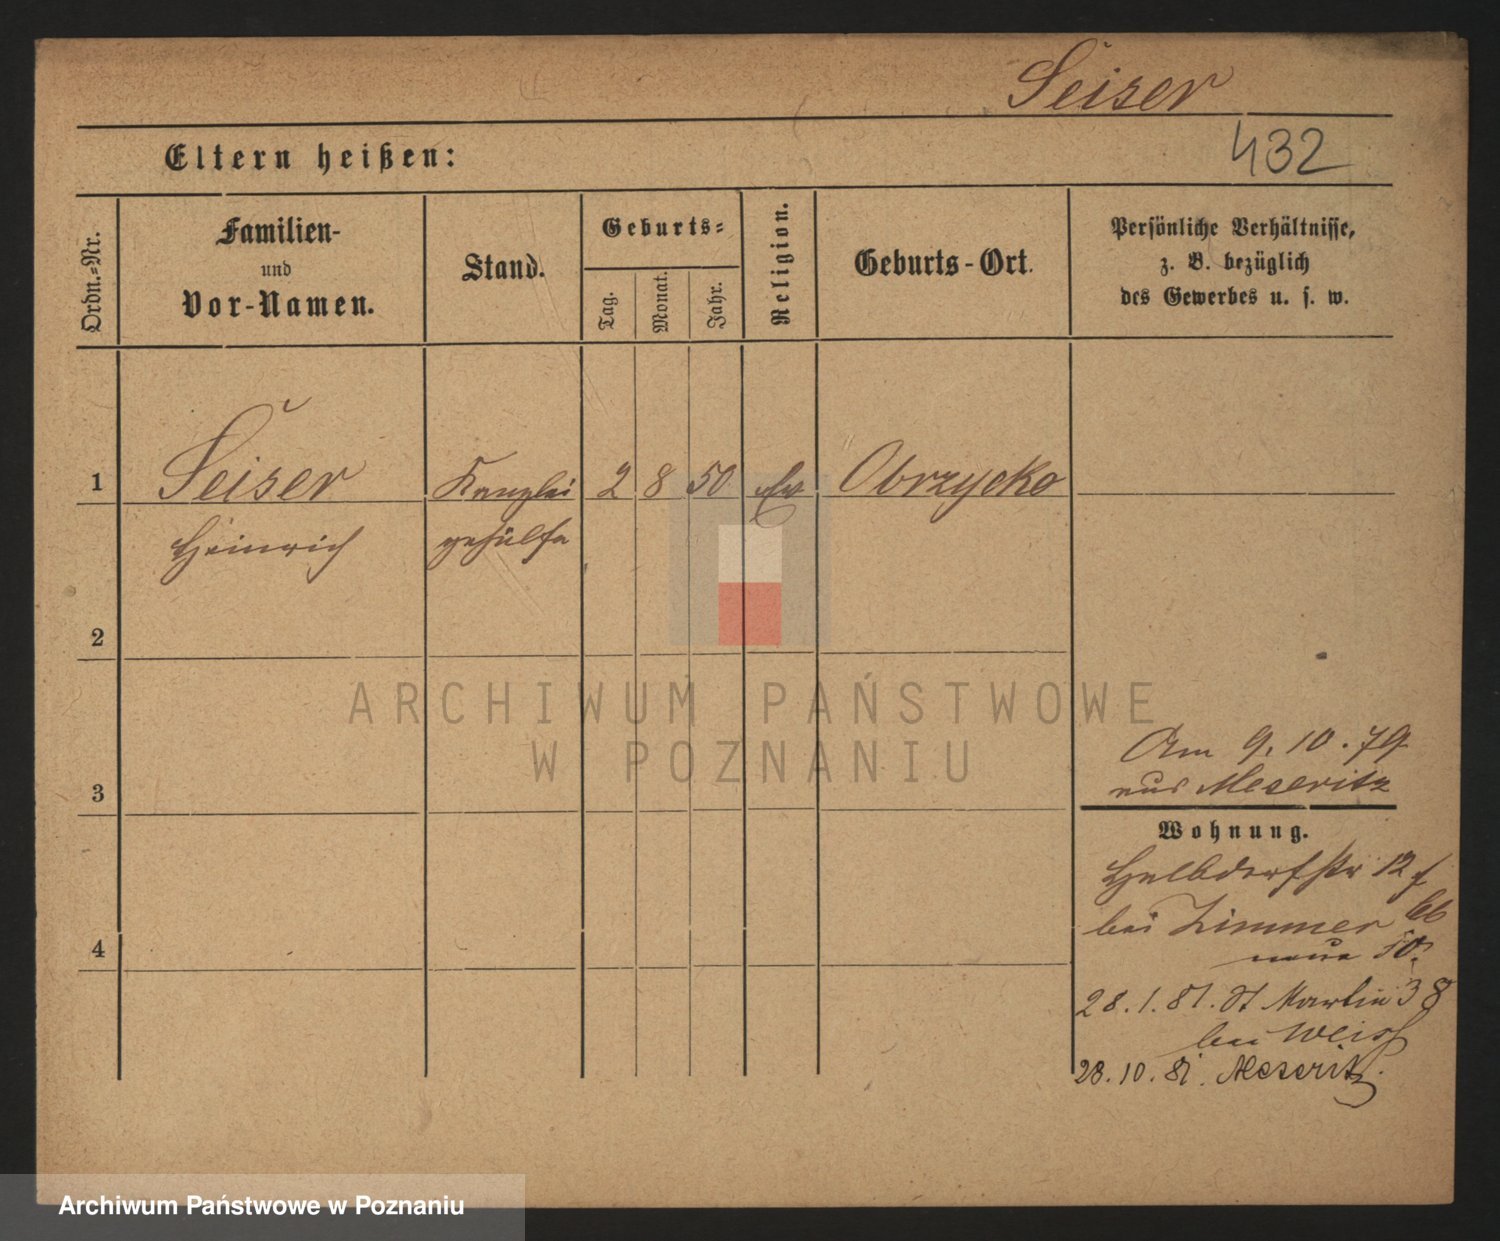 Seiser
432
Eltern heißen:
Ordn.=Nr.
Familien-
und
Vor-Namen.
Stand.
Geburts=
Tag.
Monat.
Jahr.
Religion.
Geburts-Ort.
Persönliche Verhältnisse,
z. B. bezüglich
des Gewerbes u. s. w.
1
Seiser
Heinrich
Kanzlei
gehülfe
2
8
50
Ev
Obrzycko
2
3
4
Am 9.10.79
aus Meseritz
Wohnung.
Halbdorfstr 12
bei Zimmer
28.1.81. St Martin 38
bei Weiss
28.10.81. Meseritz.
ARCHIWUM PAŃSTWOWE
W POZNANIU
Archiwum Państwowe w Poznaniu